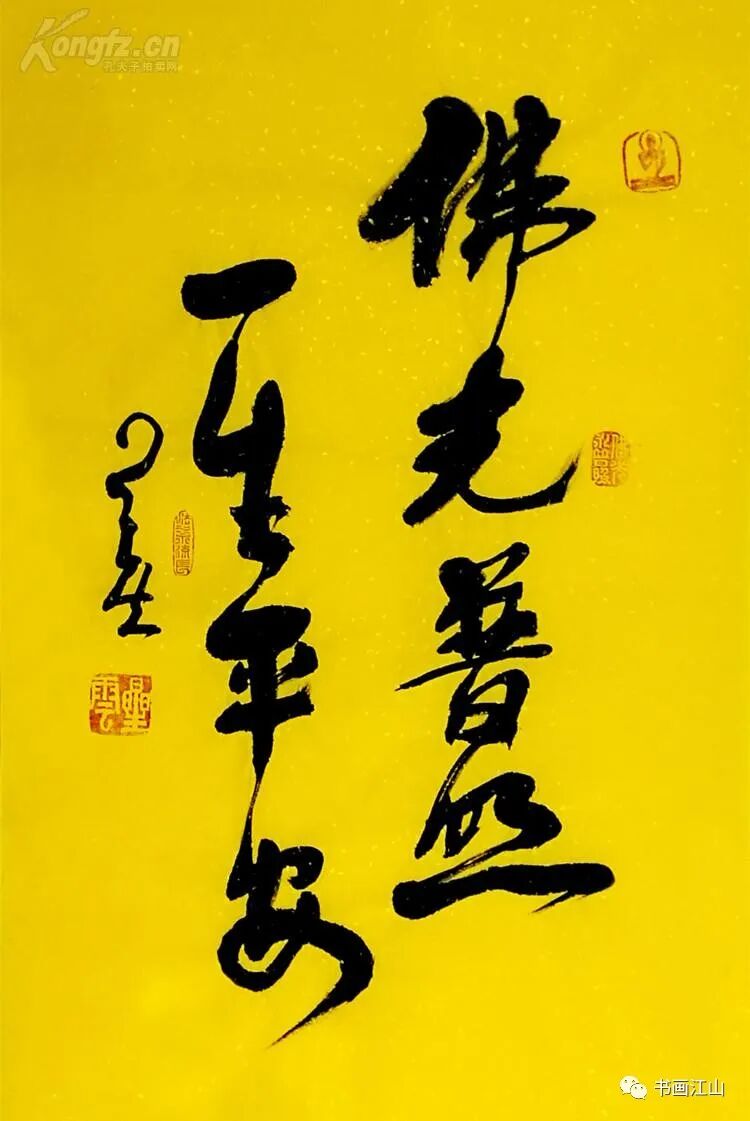 佛光普照
一生平安
星雲
星雲
Kongfz.cn
孔夫子拍卖网
书画江山